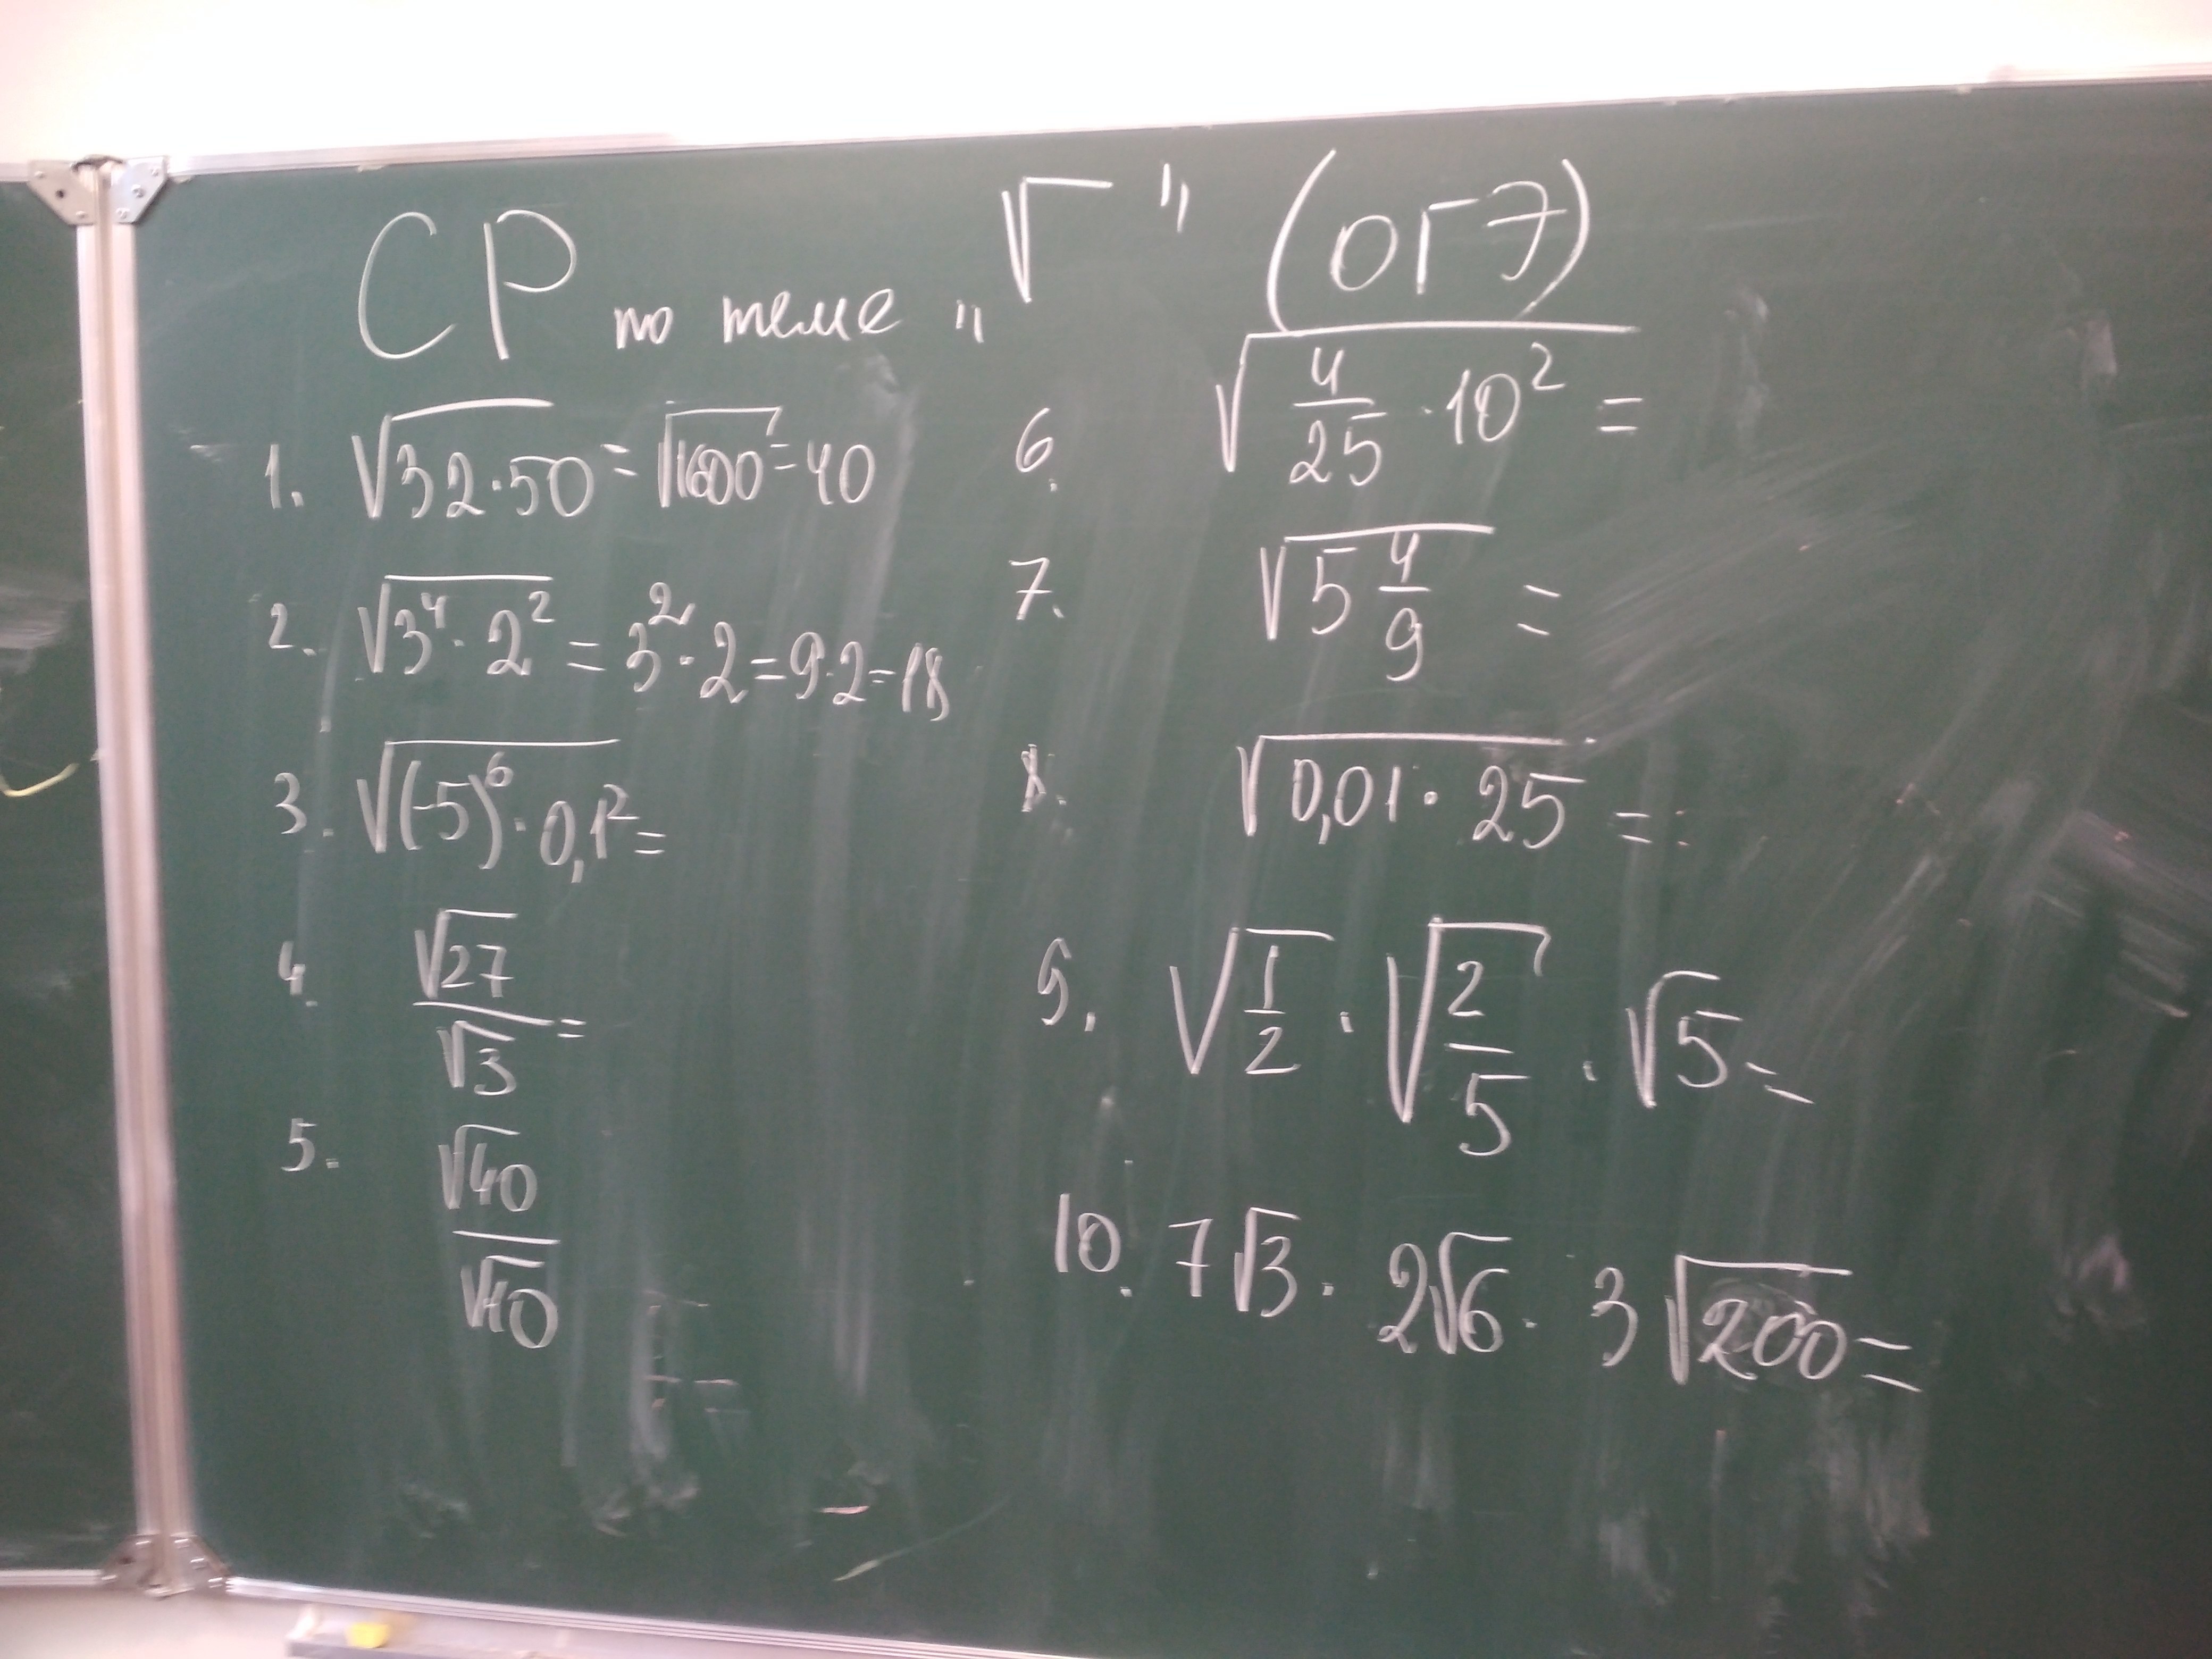 СР по теме „√‾" (ОГЭ)
1. √32·50 = √1600 = 40
2. √3⁴·2² = 3²·2 = 9·2 = 18
3. √(-5)⁶·0,1² =
4. √27/√3 =
5. √40/√10
6. √4/25·10² =
7. √5 4/9 =
8. √0,01·25 =
9. √1/2·√2/5·√5 =
10. 7√3·2√6·3√200 =